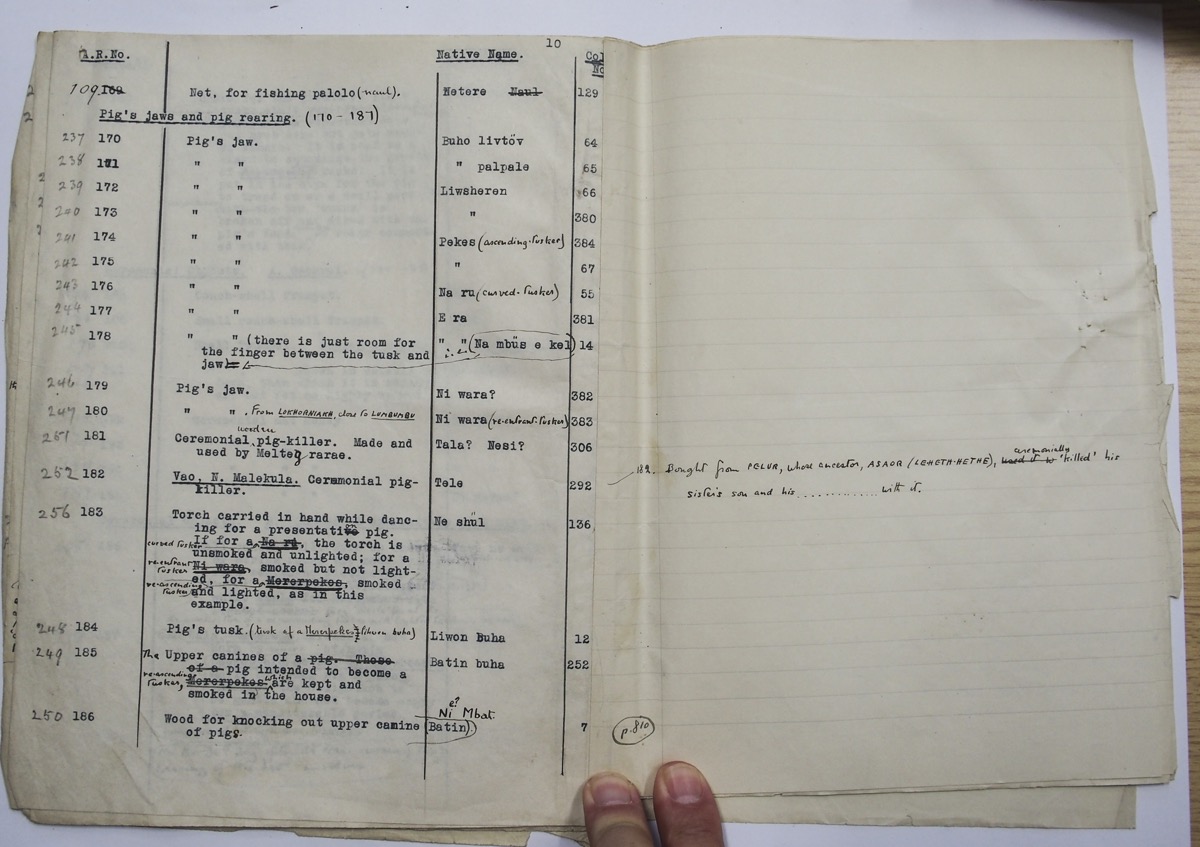 10
A.R.No. Native Name. Col No
109. 169 Net, for fishing palolo (naul). Netere Naul 129
Pig's jaws and pig rearing. (170 - 187)
237 170 Pig's jaw. Buho livtöv 64
238 171 " " " palpale 65
239 172 " " Liwsheren 66
240 173 " " " 380
241 174 " " Pekes (ascending-tusker) 384
242 175 " " " 67
243 176 " " Na ru (curved-tusker) 55
244 177 " " E ra 381
245 178 " " (there is just room for " " (Na mbüs e kel) 14
the finger between the tusk and
jaw)
246 179 Pig's jaw. Ni wara? 382
247 180 " ". From LOKHORNIAKH, close to LUMBUMBU Ni wara (re-entrant-tusker) 383
wooden
251 181 Ceremonial pig-killer. Made and Tala? Nesi? 306
used by Melteg rarae.
252 182 Vao, N. Malekula. Ceremonial pig- Tele 292
killer.
256 183 Torch carried in hand while danc- Ne shül 136
ing for a presentation pig.
curved tusker If for a Na ru, the torch is
unsmoked and unlighted; for a
re-entrant tusker Ni wara, smoked but not light-
ed, for a Mererpekes, smoked
re-ascending tusker and lighted, as in this
example.
248 184 Pig's tusk. (tusk of a Mererpekes = lihwon buha) Liwon Buha 12
249 185 The Upper canines of a pig. Those Batin buha 252
of a pig intended to become a
re-ascending tusker, Mererpekes which are kept and
smoked in the house.
e?
Ni Mbat.
250 186 Wood for knocking out upper canine (Batin) 7
of pigs.
ceremonially
182. Bought from PELUR, whose ancestor, ASAOR (LEHETH-HETHE), used it to 'killed' his
sister's son and his .............. with it.
p. 810